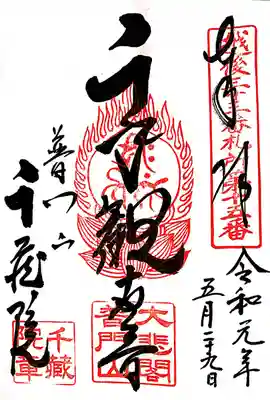 奉拝
越後三十三番札所第十五番
令和元年
五月二十九日
千手観音
普門山
千蔵院
大悲閣
普門山
千蔵
院章